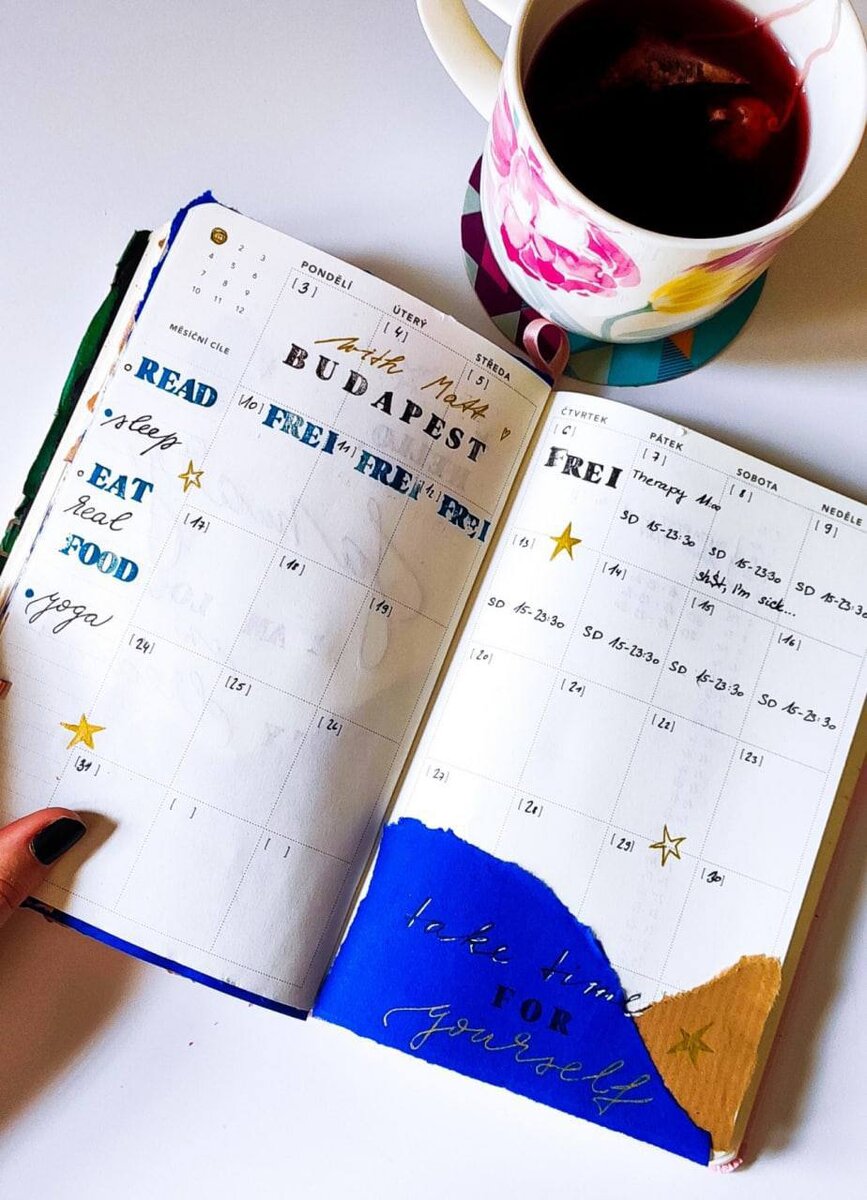 1 2 3
4 5 6
7 8 9
10 11 12
MĚSÍČNÍ CÍLE
READ
sleep
EAT
real
FOOD
yoga
PONDĚLÍ ÚTERÝ STŘEDA
[3] [4] [5]
with Matt
BUDAPEST
[10] FREI [11] FREI [12] FREI
[17] [18] [19]
[24] [25] [26]
[31] [ ] [ ]
ČTVRTEK PÁTEK SOBOTA NEDĚLE
[6] [7] [8] [9]
FREI
Therapy 11:00
SD 15-23:30
SD 15-23:30
sh$t, i'm sick...
SD 15-23:30
[13] [14] [15] [16]
SD 15-23:30
SD 15-23:30
SD 15-23:30
SD 15-23:30
[20] [21] [22] [23]
[27] [28] [29] [30]
take time
FOR
yourself